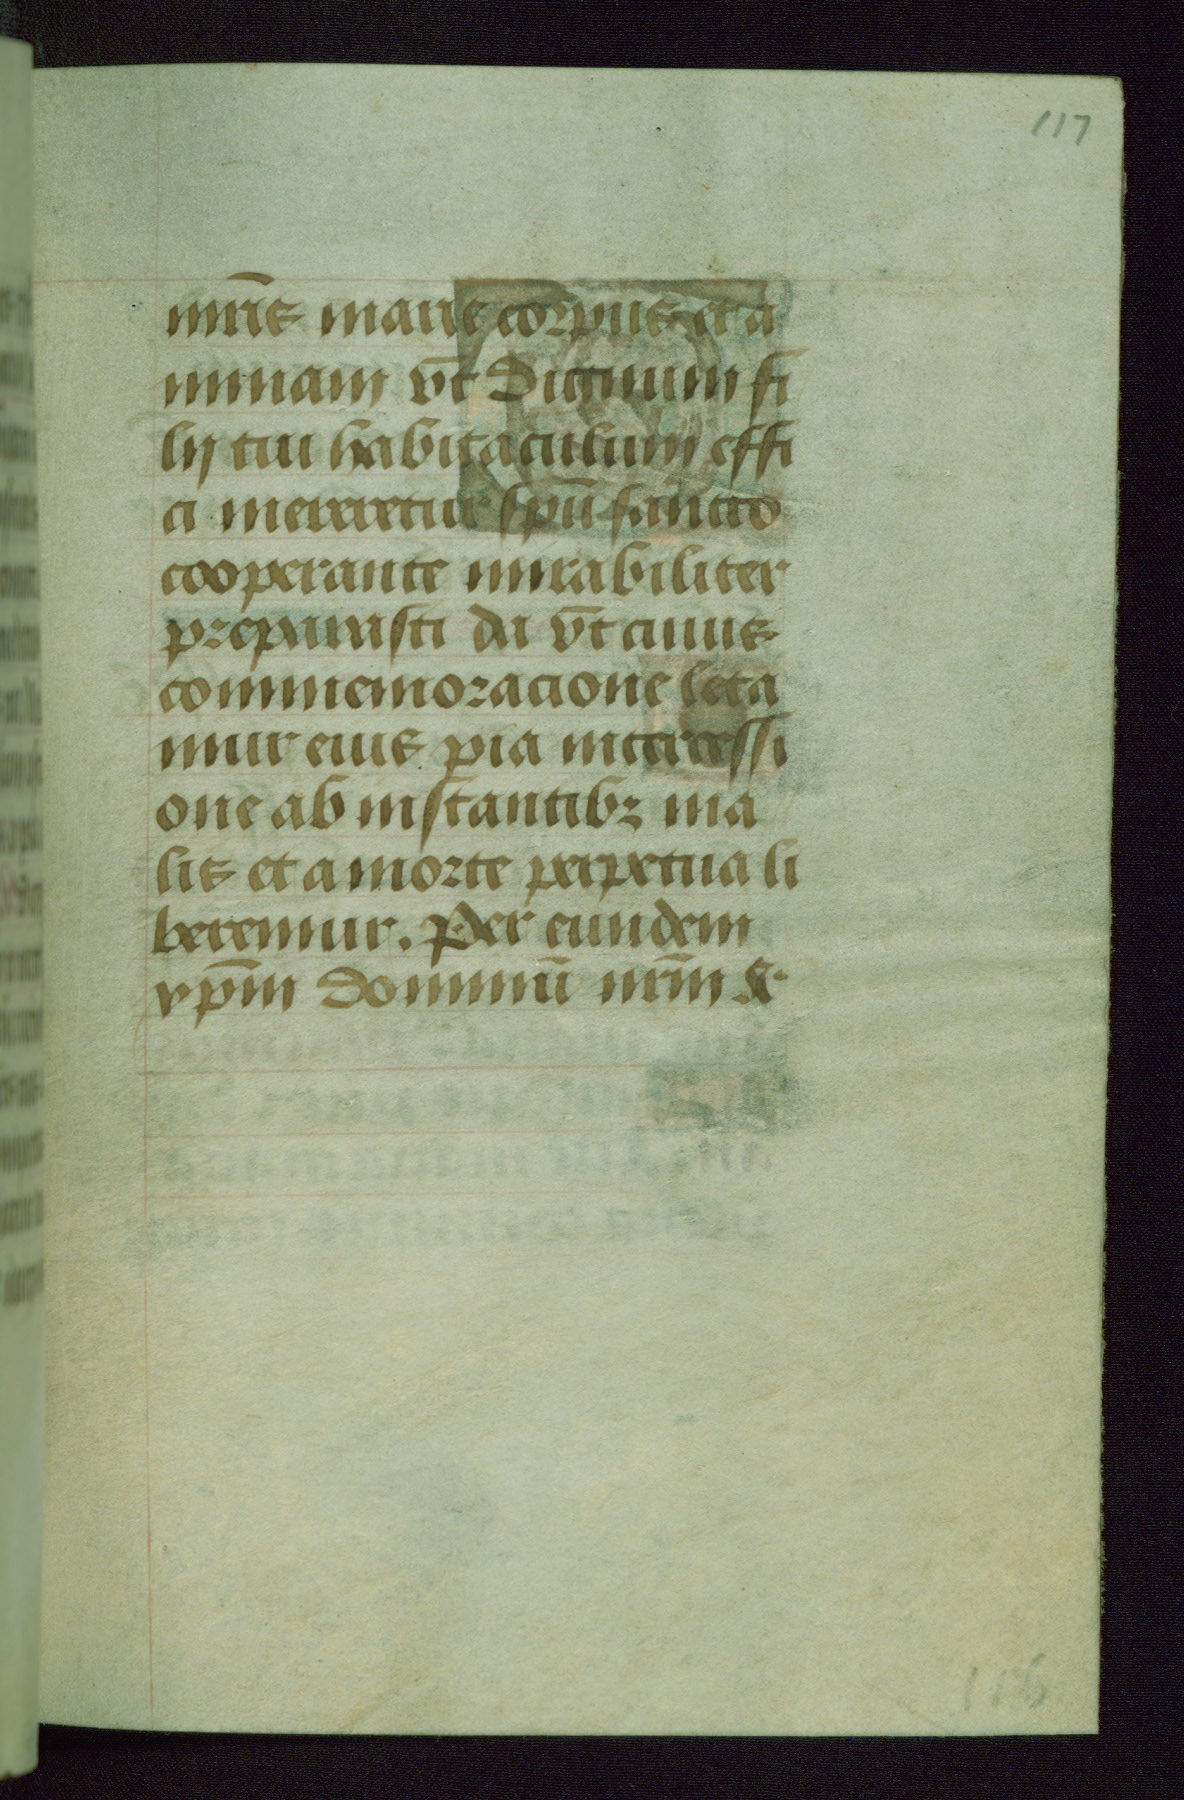 117
mr̄is marie corpus et a
nimam vt̄ dignum fi
lij tui habitaculum effi
ci mereretur spū sancto
cooperante mirabiliter
preparasti da vt̄ cuius
commemoracione leta
mur eius pia intercessi
one ab instantibꝫ ma
lis et a morte perpetua li
beremur. Per eundem
xp̄m dominū nrm̄ &
116